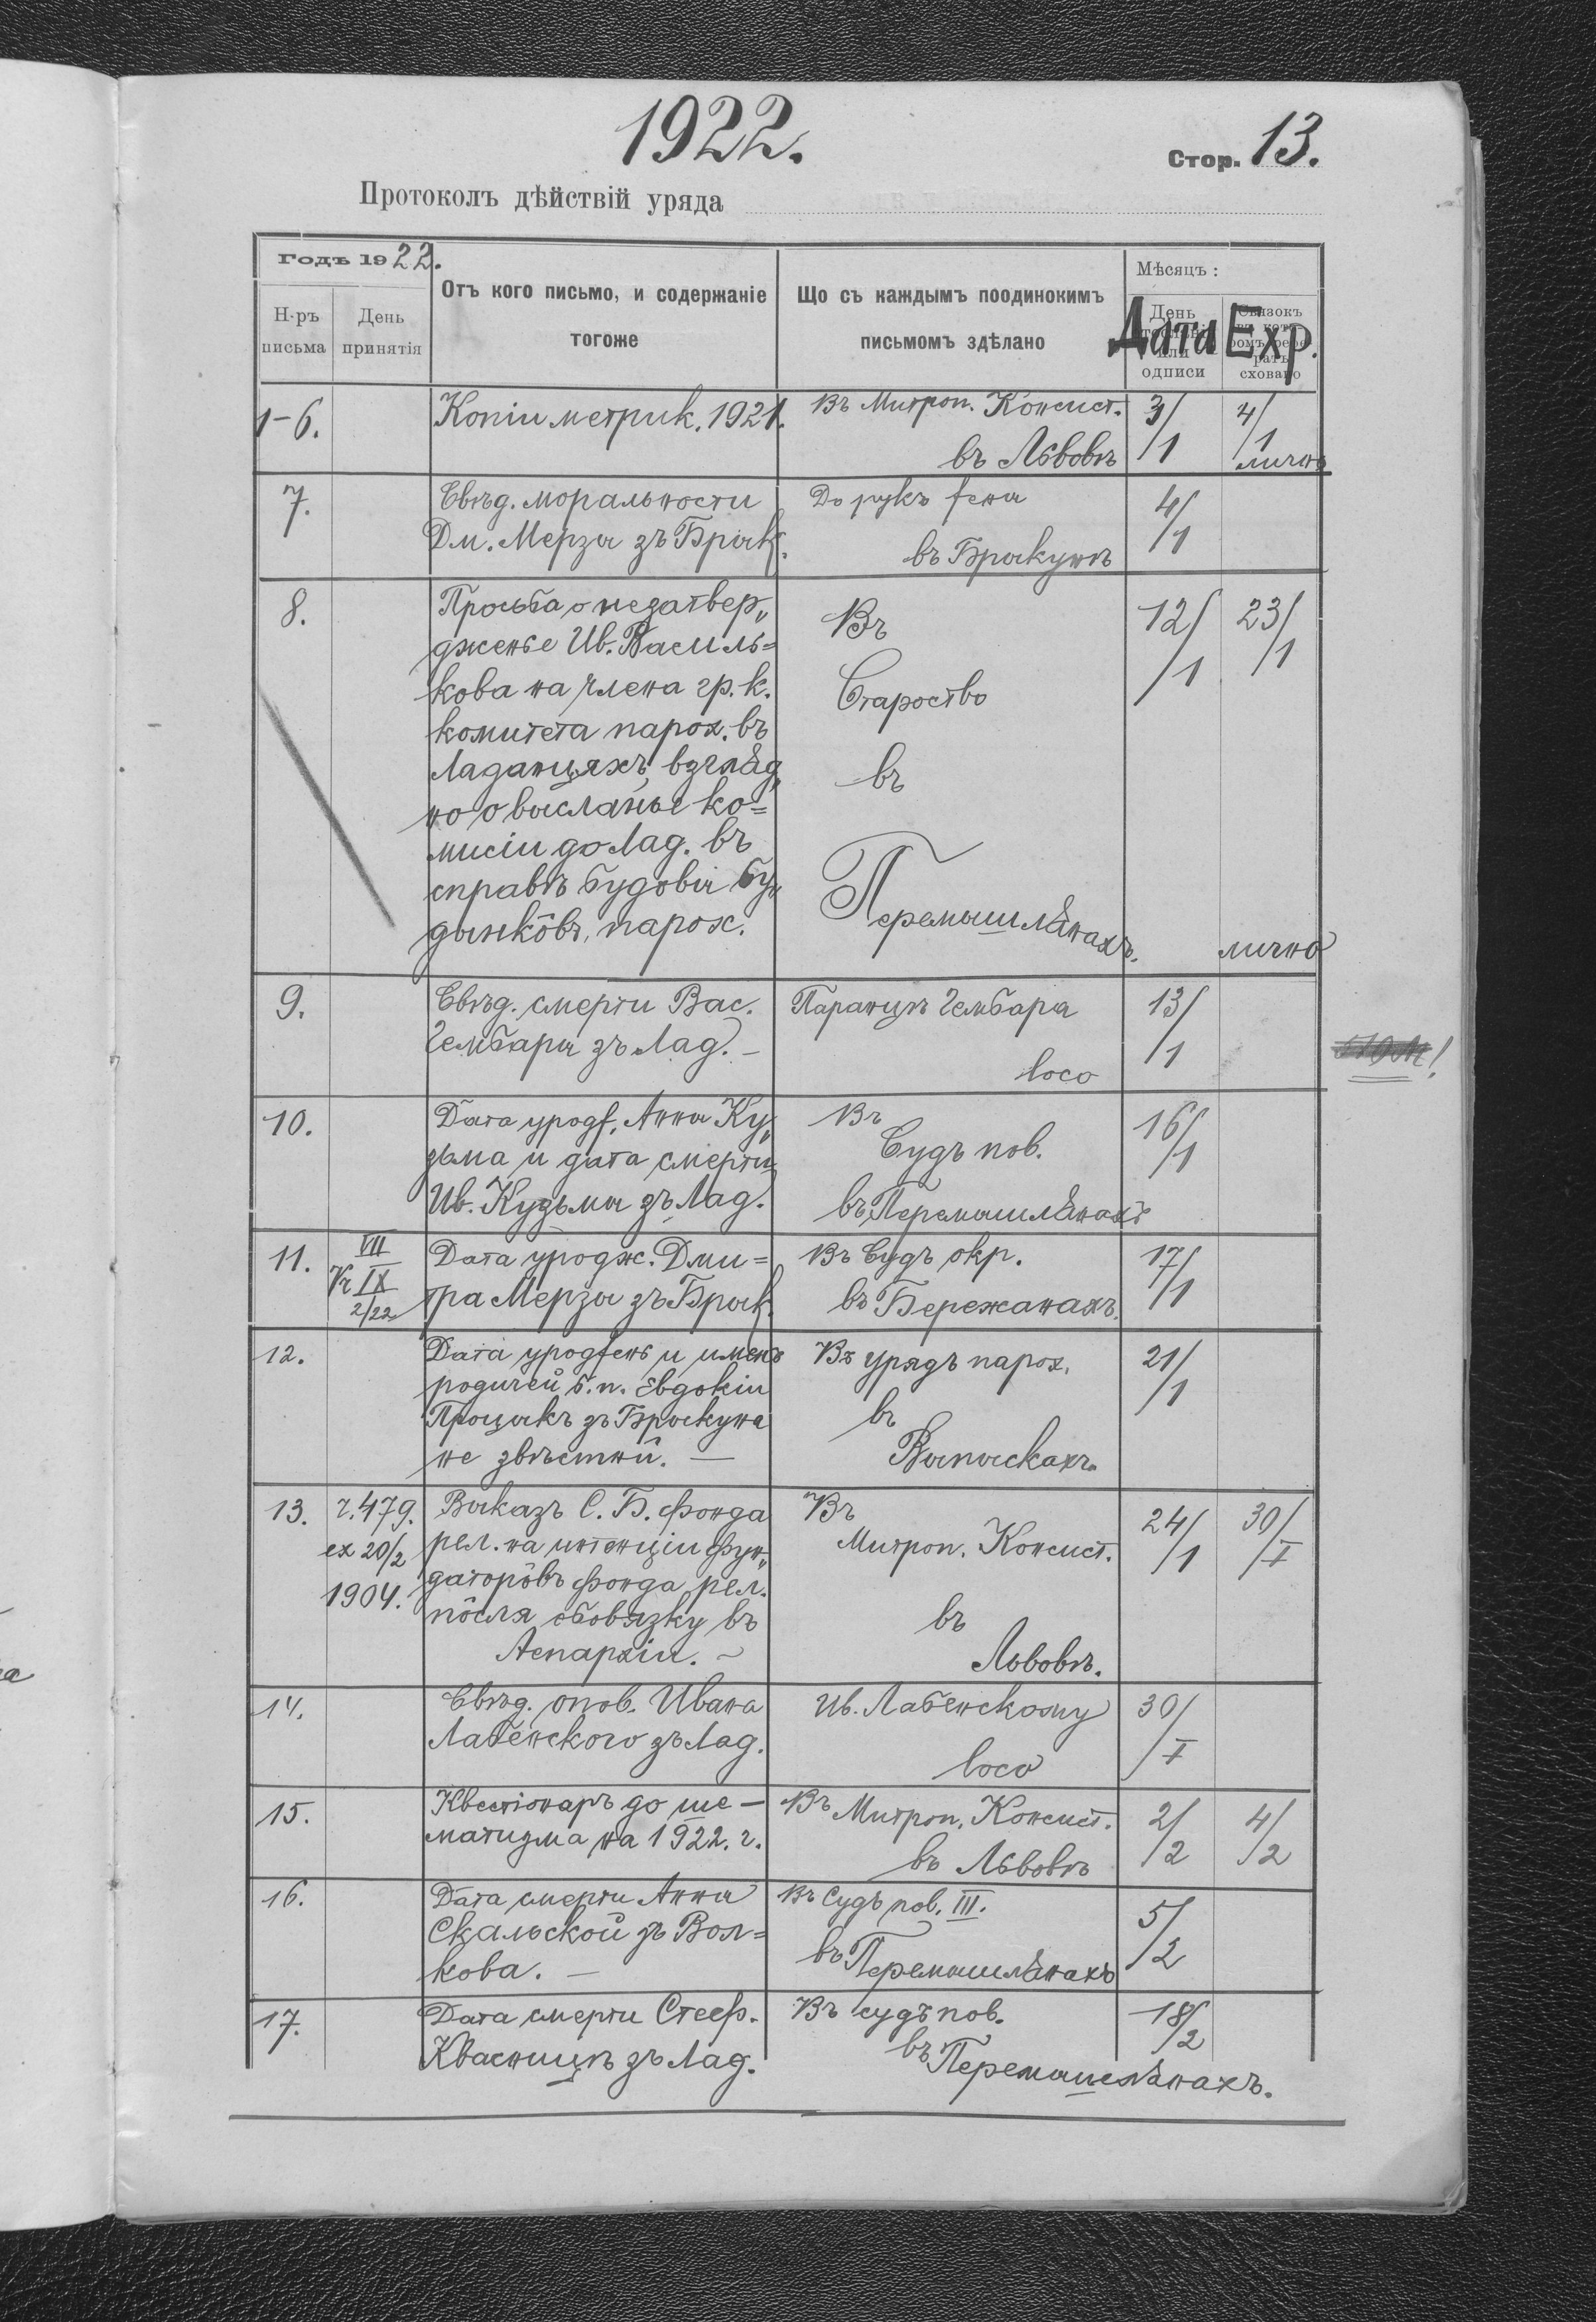 1922.
Стор. 13.
Протоколъ дѣйствій уряда
Годъ 1922.
Н-ръ письма
День принятія
Отъ кого письмо, и содержаніе
тогоже
Що съ каждымъ поодинокимъ
письмомъ здѣлано
Мѣсяцъ :
День
или
одписи
Дата
Связокъ
сховано
Exp.
1-6.
Копіи метрик. 1921.
Въ Митроп. Консист.
въ Львовѣ
3/1
4/1
лично
7.
Свѣд. моральности
Дм. Мерзы зъ Брык.
До рукъ жены
въ Брыкунѣ
4/1
8.
Просьба о незатвер„
дженье Ив. Василь=
кова на члена гр. к.
комитета парох. въ
Ладанцяхъ, взгляд„
но о высланье ко=
мисіи до Лад. въ
справѣ будовы бу„
дынкôвъ, парох.
Въ
Староство
въ
Перемышлянахъ.
12/1
23/1
лично
9.
Свѣд. смерти Вас.
Чембары зъ Лад. –
Паранцѣ Чембара
loco
13/1
10.
Дата уродж. Анны Ку„
зьма и дата смерти
Ив. Кузьмы зъ Лад.
Въ
Судъ пов.
въ Перемышлянахъ
16/1
11.
VII
Чч IX
2/22
Дата уродж. Дми=
тра Мерзы зъ Брык.
Въ Судъ окр.
въ Бережанахъ.
17/1
12.
Дата уроджень и именъ
родичей б. п. Евдокіи
Процыкъ зъ Брыкуна
не звѣстнй. —
Въ урядъ парох.
въ
Выпыскахъ.
21/1
13.
ч. 479.
ex 20/2
1904.
Выказъ С. Б. фонда
рел. на интенціи фун„
даторôвъ фонда рел.
пôсля обовязку въ
Аепархіи. ~
Въ
Митроп. Консист.
въ
Львовѣ.
24/1
30/I
14.
Свѣд. опов. Ивана
Лабенского зъ Лад.
Ив. Лабенскому
loco
30/I
15.
Квестіонаръ до ше—
матизма на 1922. г.
Въ Митроп. Консист.
въ Львовѣ
2/2
4/2
16.
Дата смерти Анны
Скальской зъ Вол=
кова. —
Въ Судъ пов. III.
въ Перемышлянахъ
5/2
17.
Дата смерти Стеф.
Квасницѣ зъ Лад.
Въ судъ пов.
въ Перемышлянахъ.
18/2